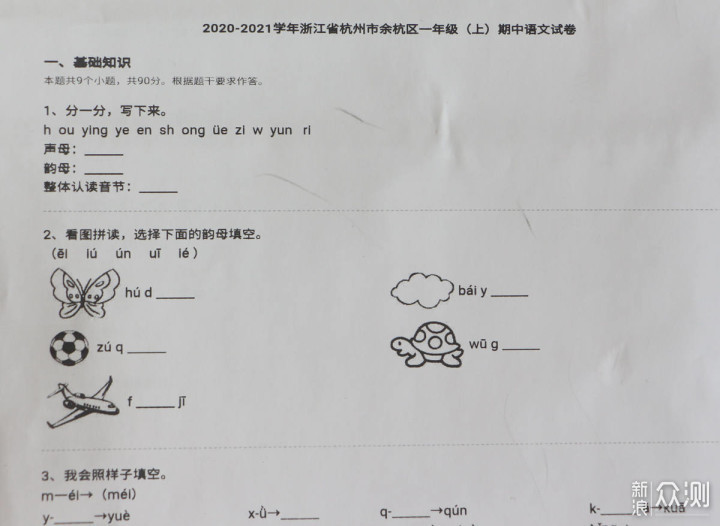 2020-2021学年浙江省杭州市余杭区一年级（上）期中语文试卷
一、基础知识
本题共9个小题，共90分。根据题干要求作答。
1、分一分，写下来。
h ou ying ye en sh ong üe zi w yun ri
声母：______
韵母：______
整体认读音节：______
2、看图拼读，选择下面的韵母填空。
（ēi iú ún uī ié）
hú d ______ bái y ______
zú q ______ wū g ______
f ______ jī
3、我会照样子填空。
m—éi→（méi）
y-______→yuè x-ù→______ q-______→qún k-______
新浪众测